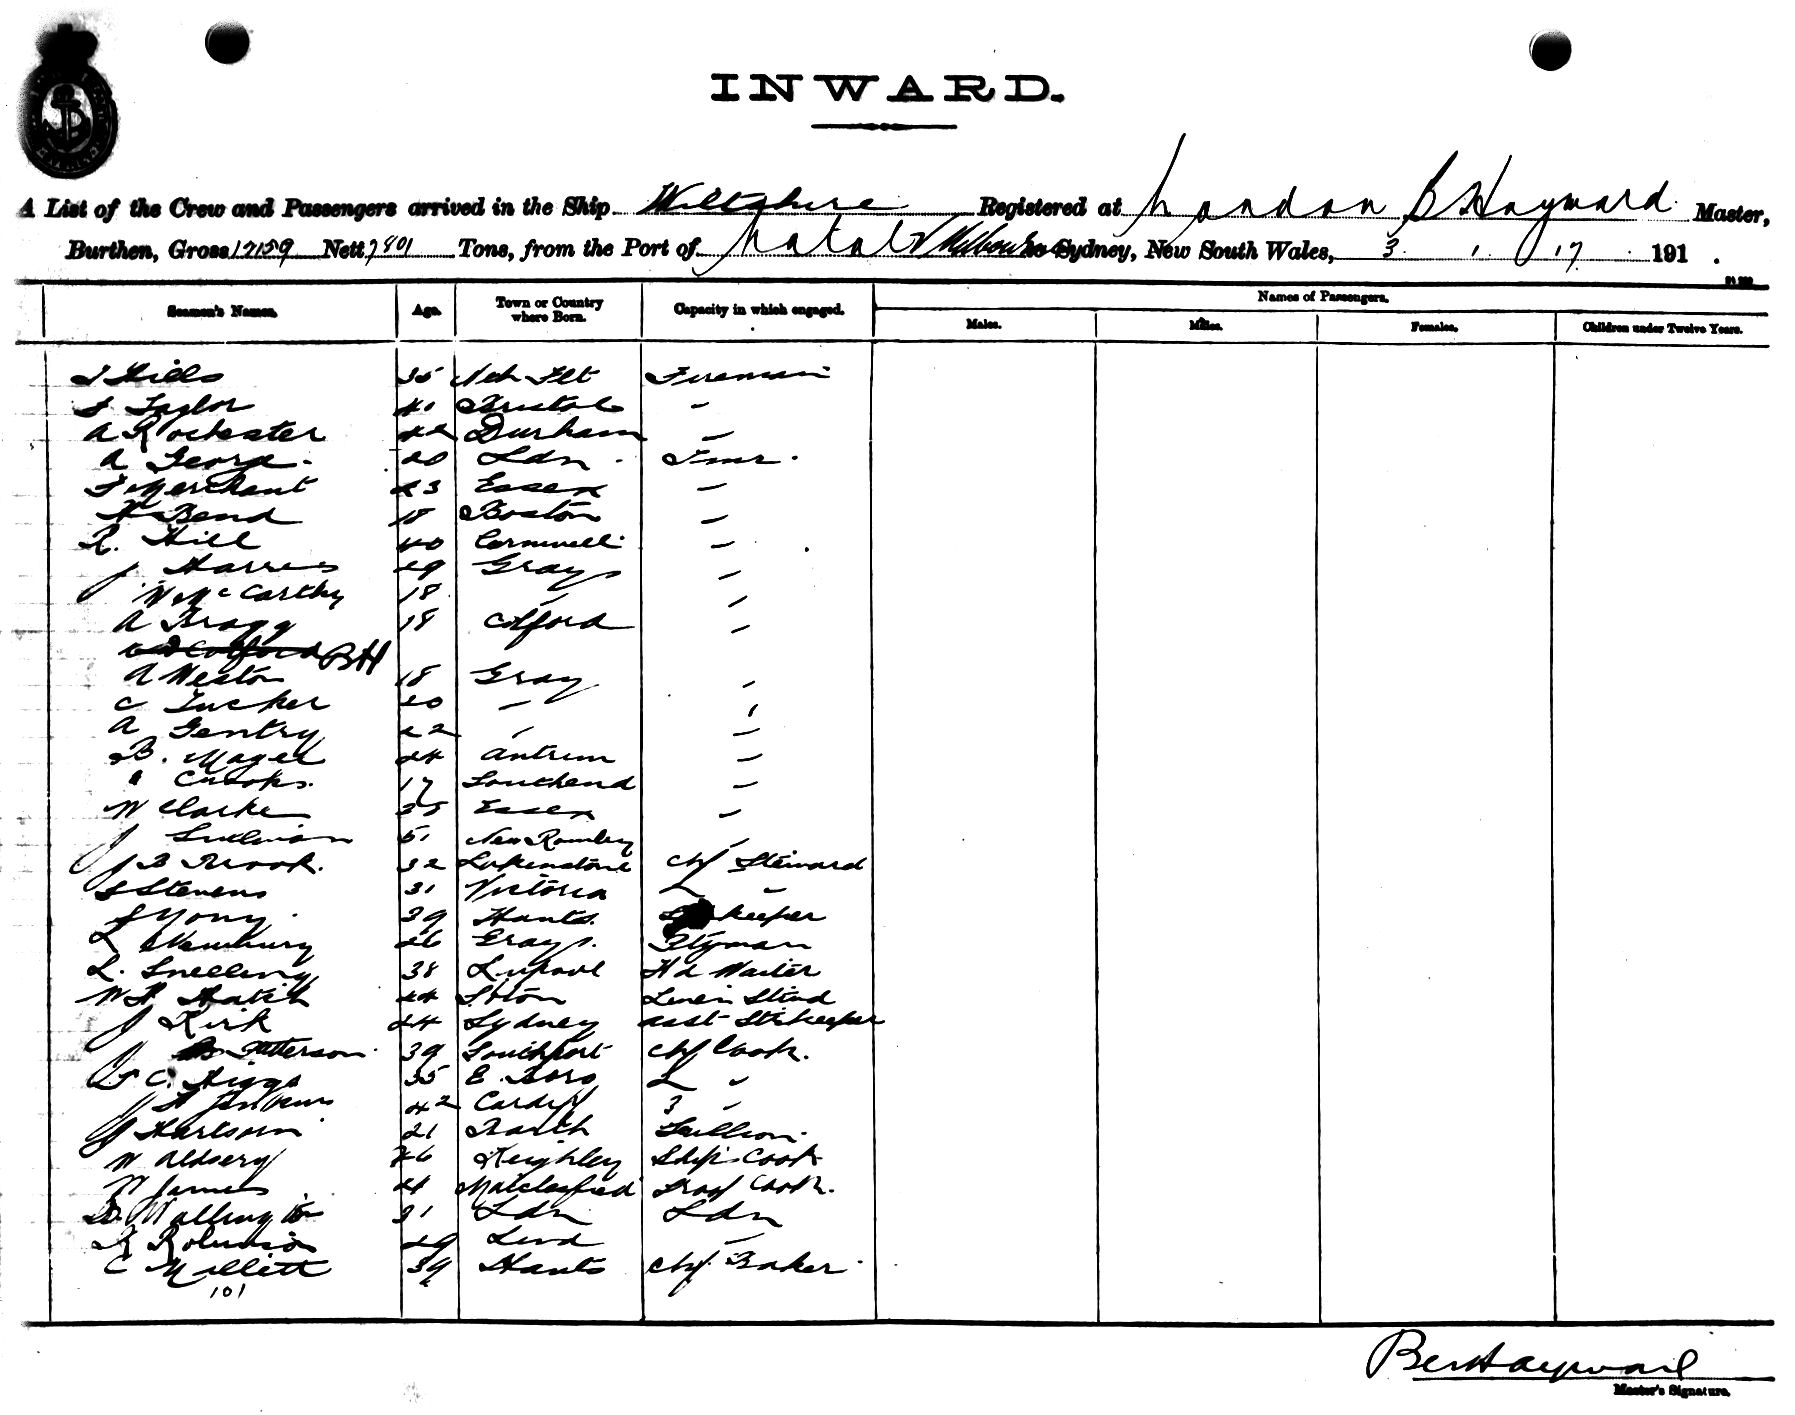 INWARD.
A List of the Crew and Passengers arrived in the Ship Wiltshire Registered at London B Hayward Master,
Burthen, Gross 12159 Nett 7801 Tons, from the Port of Natal Melbourne to Sydney, New South Wales, 3 1 17 191 .
Seamen's Names. Age. Town or Country where Born. Capacity in which engaged. Names of Passengers.
Males. Males. Females. Children under Twelve Years.
Hills 35 Fireman
Taylor 41 Bristol "
A Rochester 42 Durham "
A George 20 Ldn Fmr
F Merchant 23 Essex "
H Bend 18 Boston "
R. Hill 40 Cornwell "
J Harris 29 Grays "
W McCarthy 18 " "
A Bragg 18 Colford "
Colford BH
A Weston 18 Gray "
C Tucker 20 " "
A Gentry 22 " "
B. Magee 24 Antrim "
" Crooks. 17 Southend "
W Clarke 25 Essex "
J Sullivan 51 New Romley "
J B Brook. 32 Chf Steward
S Stevens 31 Victoria 2 "
39 Hants. keeper
L Newbury 26 Grays. Btyman
L. Snelling 38 Lupool Hd Waiter
W H Hatch 44 Soton Linen Stwd
J Kirk 24 Sydney asst Strkeeper
J Patterson 39 Southport Chf Cook.
C. Higgs 35 E. Boro 2 "
J H Jenkins 42 Cardiff 3 "
J Harlsom 21 Scullion
W 26 Keighley Ships Cook
W James Macclesfield Cook.
D. Wallington 31 Ldn Ldn
R Robinson 29 "
C Mellett 39 Hants Chf Baker
101
Ben Hayward
Master's Signature.